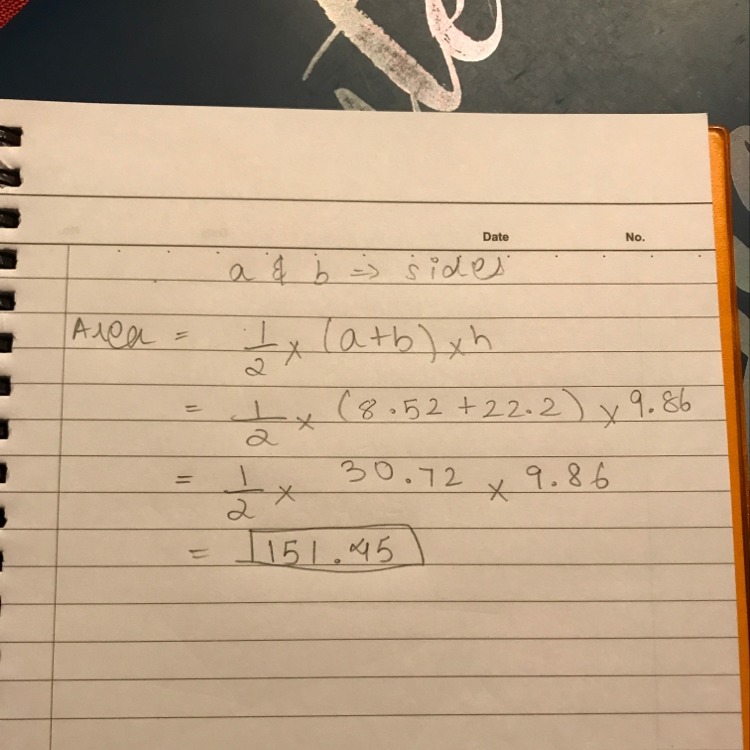 Date No.
a & b => sides
Area = 1/2 × (a+b) × h
= 1/2 × (8.52 + 22.2) × 9.86
= 1/2 × 30.72 × 9.86
= 151.45